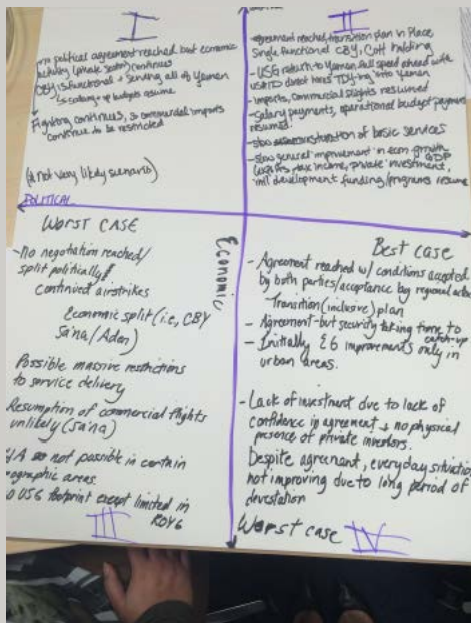 I
no political agreement reached but economic
activity (private sector) continues
CBY is functional + serving all of Yemen
↳ scaling-up budgets resume
Fighting continues, so commercial imports
continue to be restricted
(a not very likely scenario)
POLITICAL
II
-Agreement reached, transition plan in Place
Single functional CBY, Ceasefire holding
-USG return to Yemen, full speed ahead with
USAID direct hires TDY-ing into Yemen
-Imports, commercial flights resumed
-Salary payments, operational budget payments
resumed.
-slow restoration of basic services
-slow general improvement in econ growth GDP
tax income, private investment,
int'l development funding/programs resume
WORST CASE
-No negotiation reached/
split politically
continued airstrikes
Economic split (i.e., CBY
Sana/Aden)
Possible massive restrictions
to service delivery
Resumption of commercial flights
unlikely (Sana)
not possible in certain
geographic areas.
USG footprint except limited in
ROYG
III
Economic
Best case
- Agreement reached w/ conditions accepted
by both parties/acceptance by regional actors
Transition (inclusive) plan
- Agreement-but security taking time to
catch-up
- Initially EG improvements only in
urban areas.
-Lack of investment due to lack of
confidence in agreement + no physical
presence of private investors.
Despite agreement, everyday situation
not improving due to long period of
devestation
Worst case IV